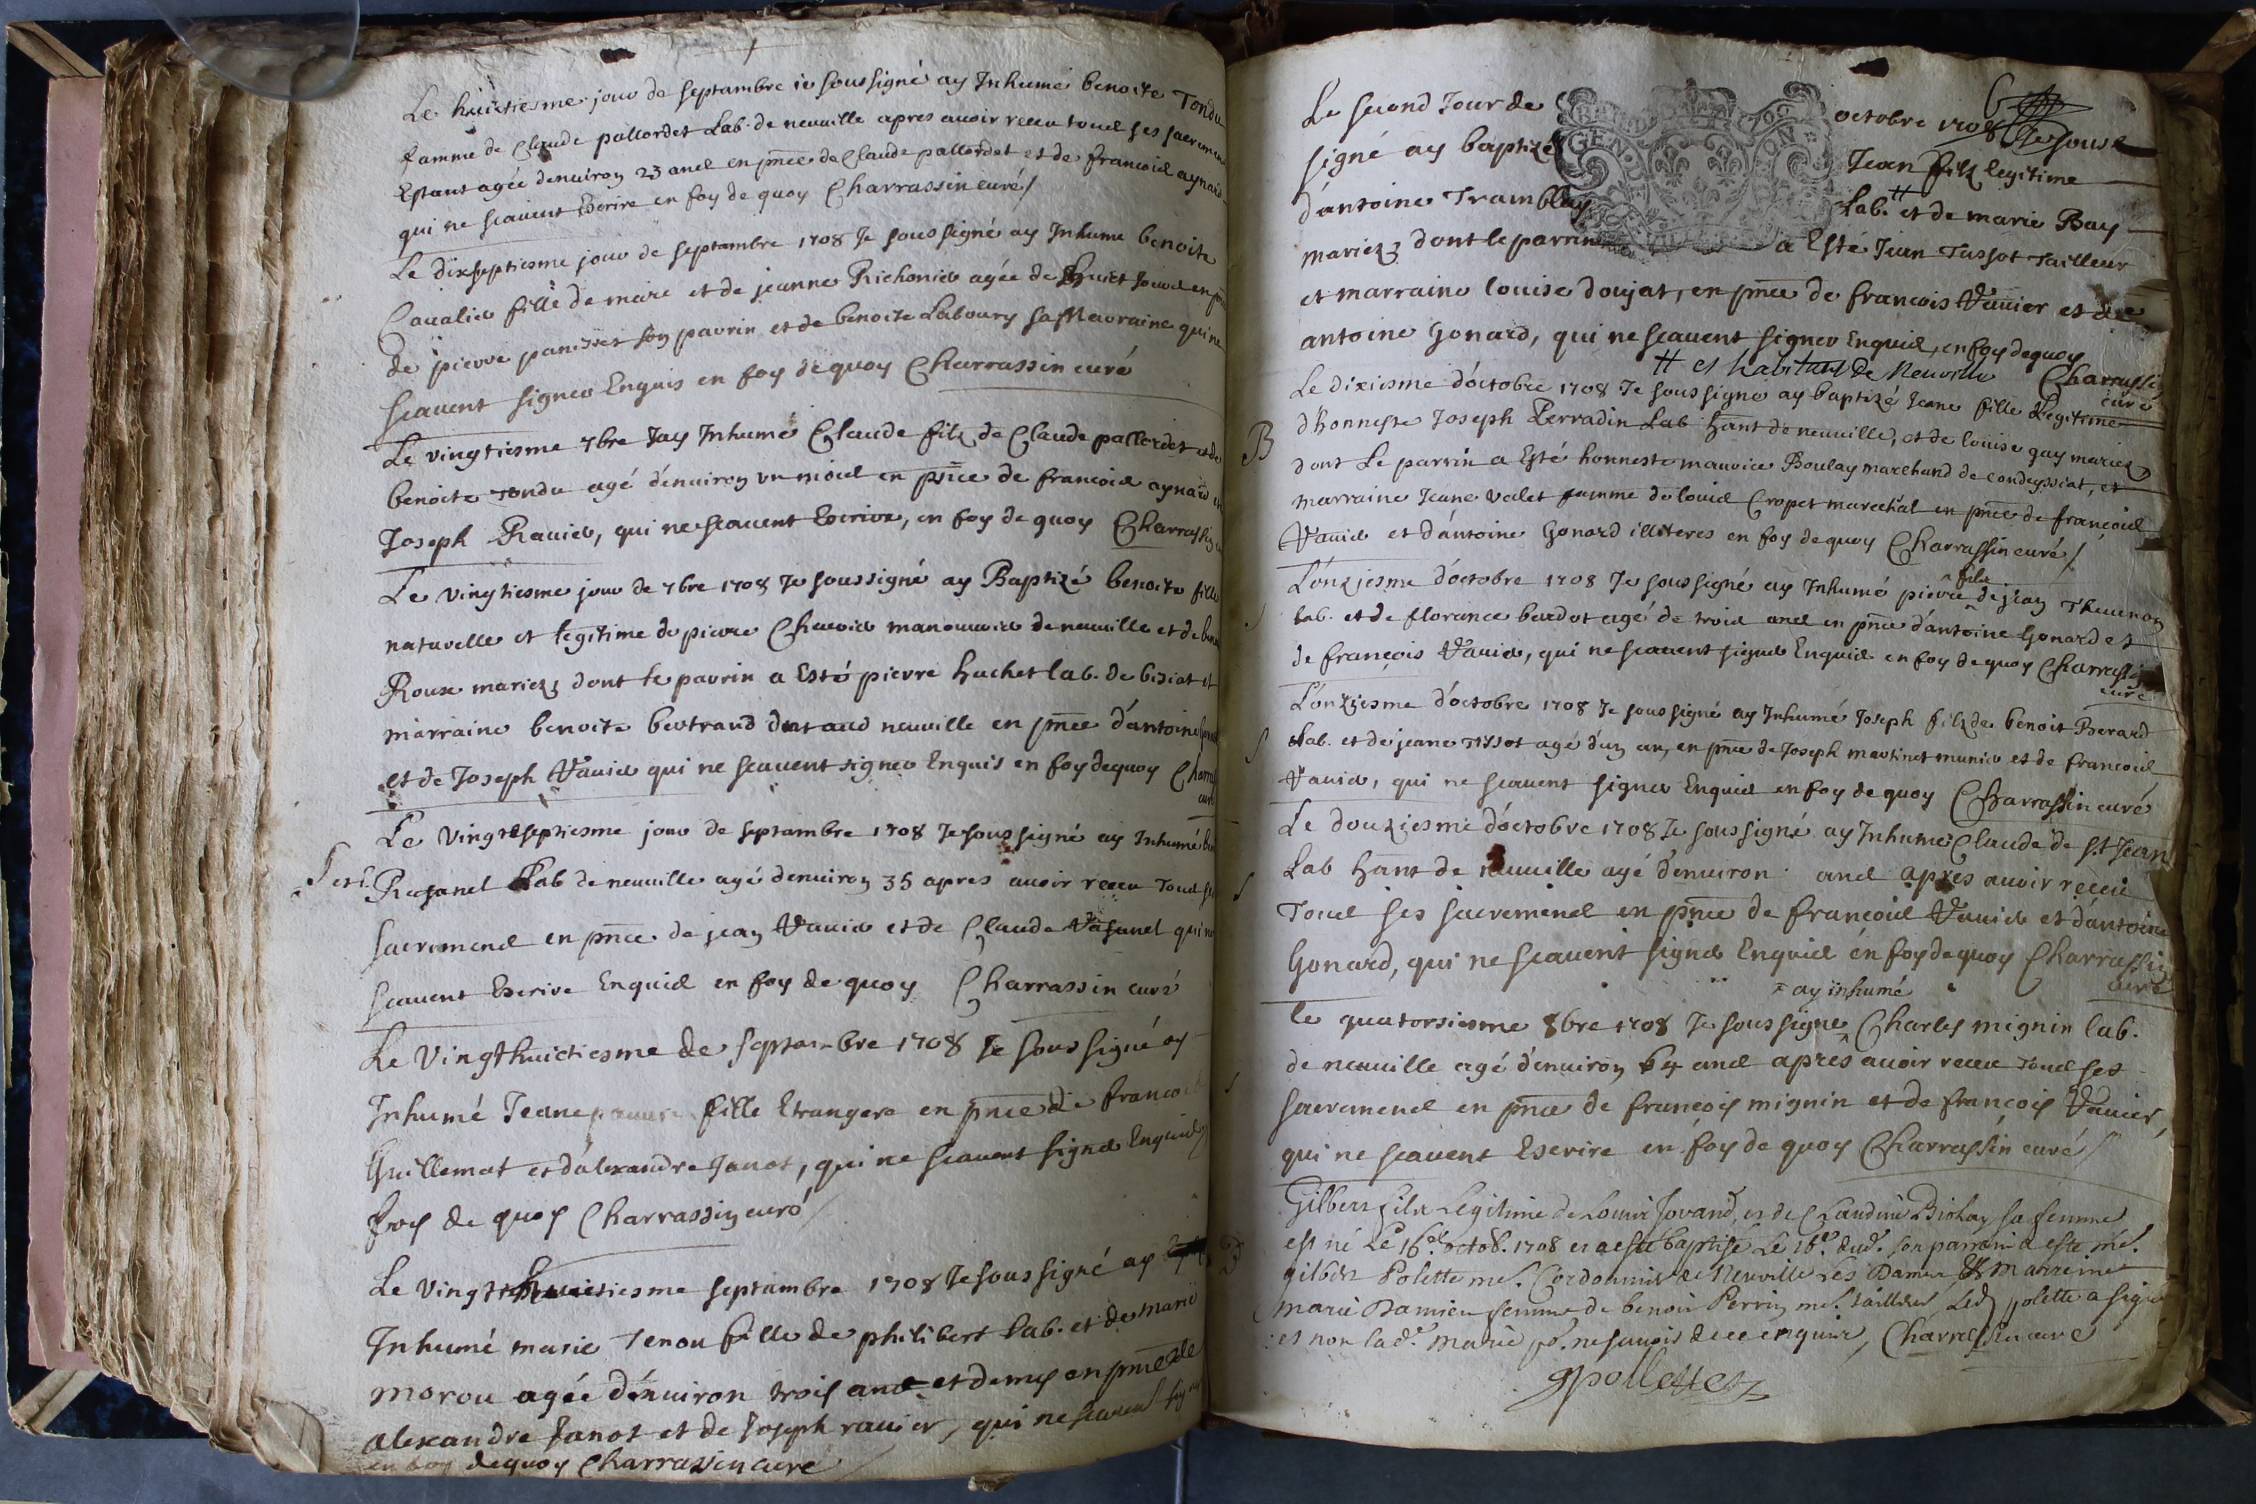 Le huictiesme jour de septambre ie soussigné ay Inhumé benoite Tondu
famme de Claude pallordet Lab. de neuuille apres auoir receu tous ses sacremens
Estant agée denuiron 23 ans en pnce de Claude pallordet et de francois aynard
qui ne scauent Escrire en foy de quoy Charrassin curé
Le dixseptiesme jour de septambre 1708 Je soussigné ay Inhumé benoite
Caualier fille de marc et de jeanne Richonier agée de huict jours en pnce
de pierre panisset son parrin et de benoite Laboury sa Marraine qui ne
scauent signer Enquis en foy de quoy Charrassin curé
Le vingtiesme 7bre Jay Inhumé Claude filz de Claude pallordet et de
benoite tondu agé dénuiron vn mois en pnce de francois aynard et
Joseph Rauier, qui ne scauent Escrire, en foy de quoy Charrassin
Le vingtiesme jour de 7bre 1708 Je soussigné ay Baptizé benoite fille
naturelle et legitime de pierre manouurier de neuuille et de
Roux mariez dont le parrin a Esté pierre huchet lab. de et
marraine benoite bertrand neuuille en pnce d'antoine
et de Joseph Rauier qui ne scauent signer Enquis en foy de quoy
curé
Le vingtseptiesme jour de septambre 1708 Je soussigné ay Inhumé
S et
Lab de neuuille agé denuiron 35 apres auoir receu Tous ses
sacremens en pnce de jean Rauier et de Claude qui ne
scauent Escrire Enquis en foy de quoy Charrassin curé
Le Vingthuictiesme de septambre 1708 Je soussigné ay
Inhumé Jeane fille Etrangere en pnce de francois
Guillemot et d'alexandre Janot, qui ne scauent signer Enquis
foy de quoy Charrassin curé
Le Vingthuictiesme septambre 1708 Je soussigné ay
Inhumé marie Tenou fille de philibert Lab. et de Marie
morou agée dénuiron trois ans et demy en pnce de
alexandre Janot et de Joseph rauier, qui ne scauent signer
en foy dequoy Charrassin curé
6
Le second Jour de octobre 1708 Je sous
signé ay baptizé Jean filz legitime
d'antoine Tramblay Lab. # et de marie Bay
mariez dont le parrin a Esté Jean Tissot Tailleur
et marraine louise doujat, en pnce de francois Rauier et de
antoine Gonard, qui ne scauent signer Enquis, en foy dequoy
# et habitant de Neuville Charrassin
curé
B
Le dixiesme d'octobre 1708 Je soussigné ay baptizé Jeane fille Legitime
dhonneste Joseph Perradin Lab hant de neuuille, et de louise gay mariez
dont Le parrin a Esté honneste maurice Boulay marchand de condeyssiat, et
marraine Jeane valet famme de louis Cropet marechal en pnce de francois
Rauier et d'antoine Gonard illiteres en foy de quoy Charrassin curé
L'onziesme d'octobre 1708 Je soussigné ay Inhumé pierre filz de jean Theuenon
Lab. et de florance bardot agé de trois ans en pnce d'antoine Gonard et
de françois Rauier, qui ne scauent signer Enquis en foy de quoy Charrassin
curé
L'onziesme d'octobre 1708 Je soussigné ay Inhumé Joseph filz de benoit Berard
Lab. et de jeane Tissot agé d'un an, en pnce de Joseph martinet munier et de francois
Rauier, qui ne scauent signer Enquis en foy de quoy Charrassin curé
Le douziesme d'octobre 1708 Je soussigné ay Inhumé Claude de St Jean
Lab hant de neuuille agé denuiron ans apres auoir receu
Tous ses sacremens en pnce de francois Rauier et d'antoine
Gonard, qui ne scauent signer Enquis en foy de quoy Charrassin
curé
^ ay inhumé
le quatorsiesme 8bre 1708 Je soussigné Charles mignin lab.
de neuuille agé d'enuiron 64 ans apres auoir receu tous ses
sacremens en pnce de francois mignin et de francois Rauier,
qui ne scauent Escrire en foy de quoy Charrassin curé
B
Gilbert filz Legitime de Louis Jovand, et de Claudine Biolay sa femme
est né Le 16e octob. 1708 et a esté baptisé Le 16e dud. son parrain a esté me.
gilbert Polette me. Cordonnier de Neuville Les Dames & Marreine
marie Damien femme de benoit Perrin me. tailleur, Led polette a signé
et non lad. marie pr. ne scauoir de ce enquise, Charrassin curé
gpollette